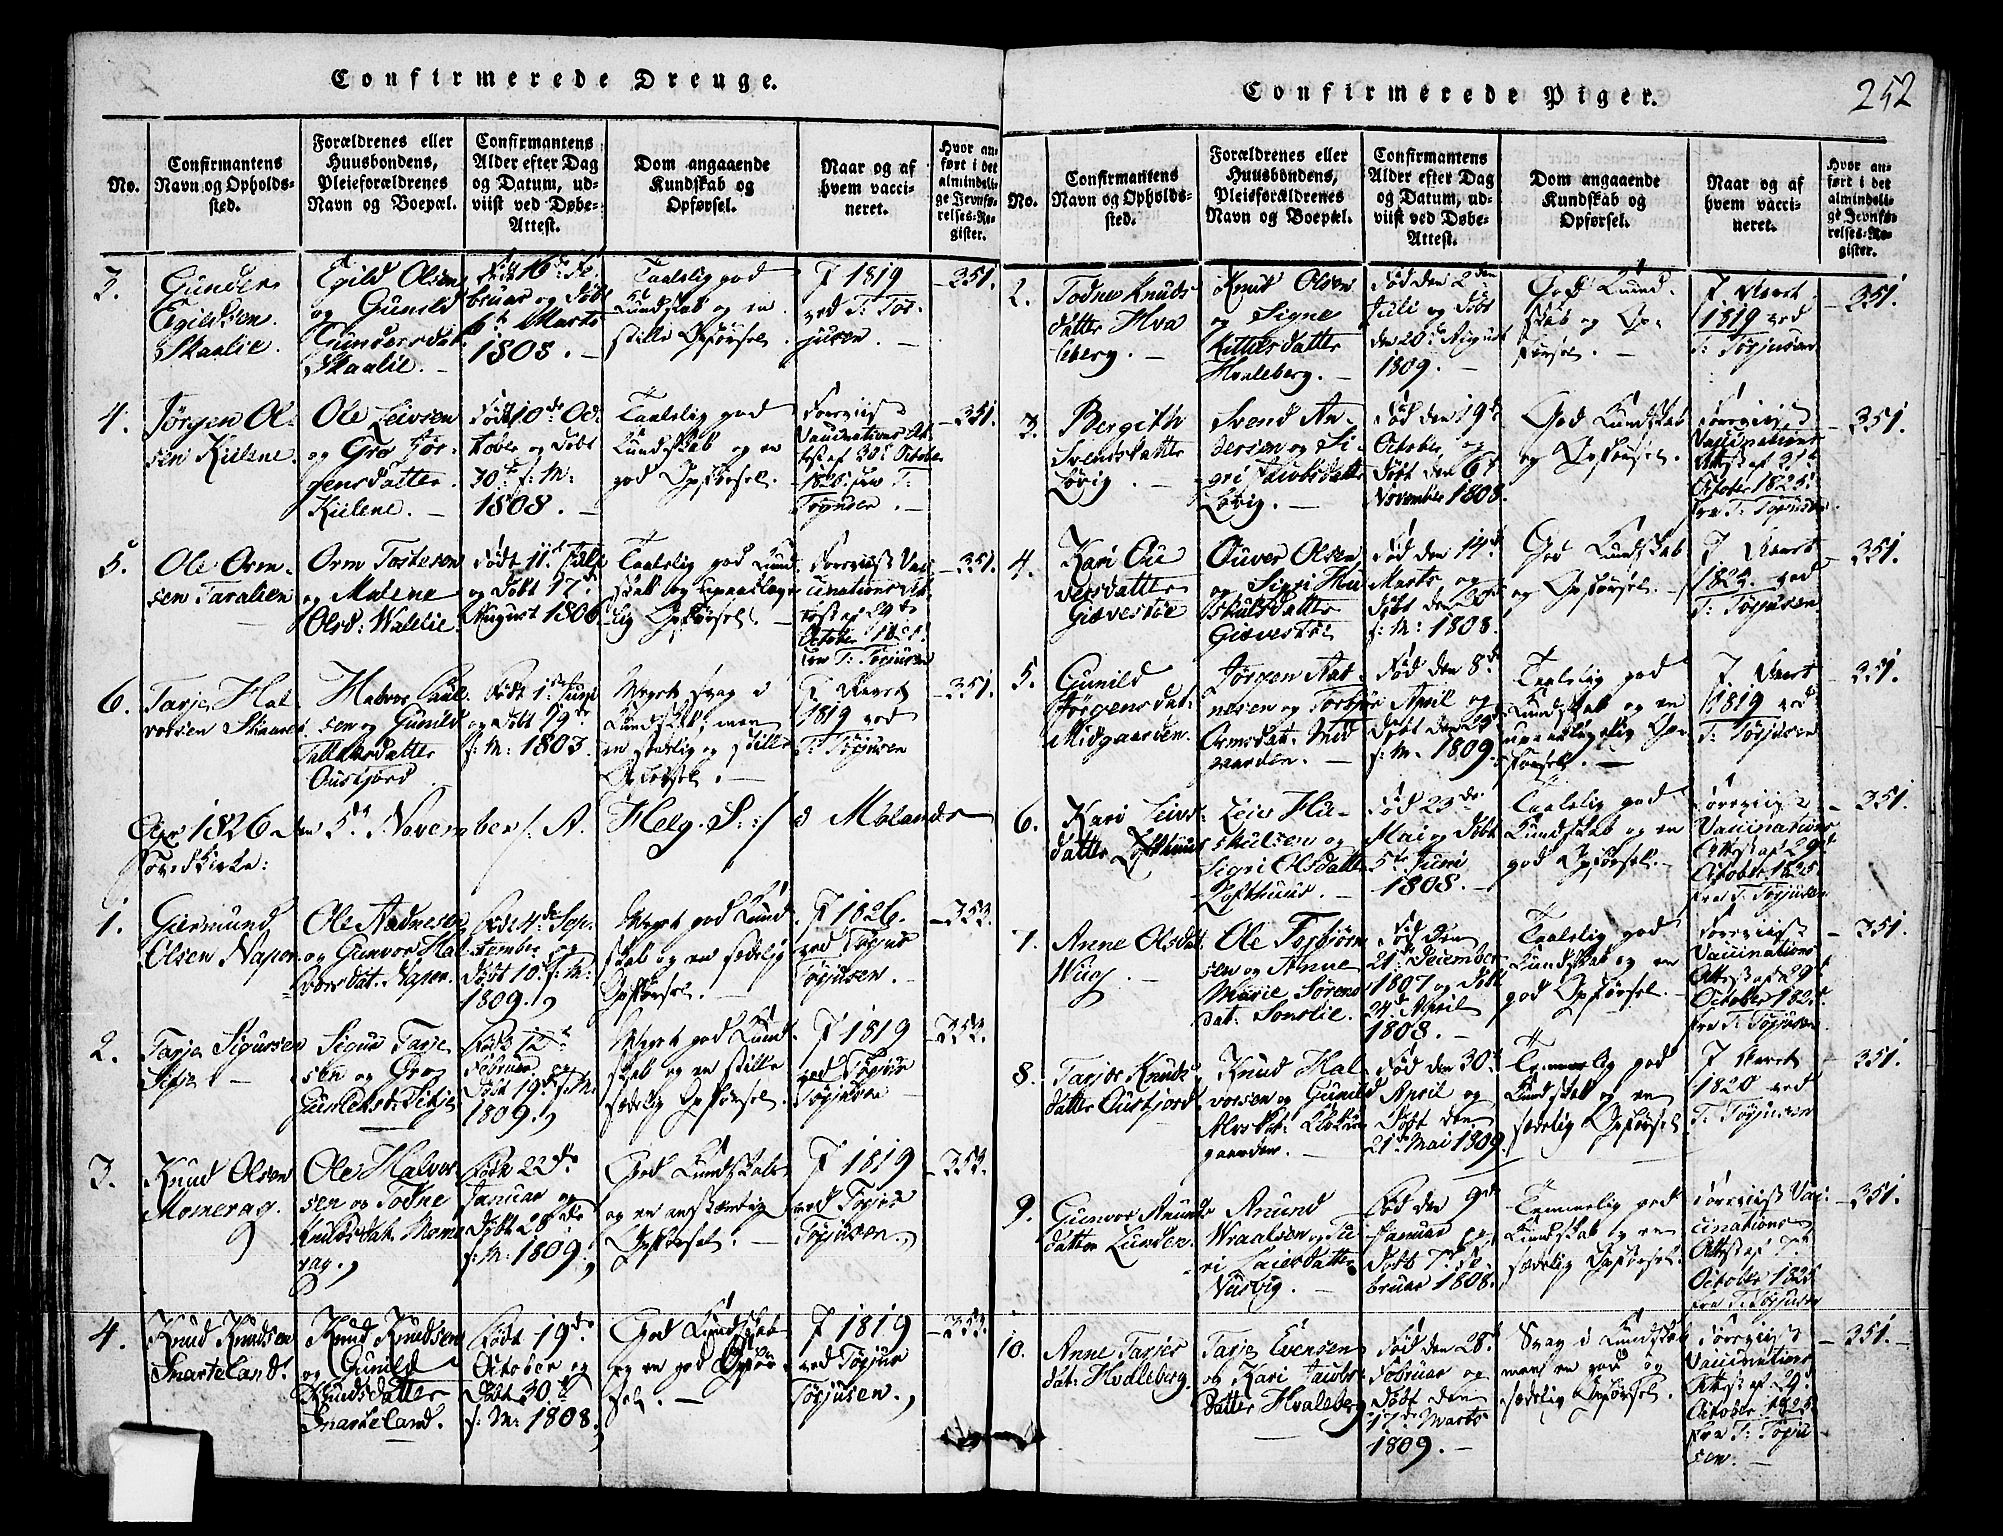 Confirmerede Drenge.
No.
Confirmantens
Navn og Opholds-
sted.
Forældrenes eller
Huusbondens,
Pleieforældrenes
Navn og Boepæl.
Confirmantens
Alder efter Dag
og Datum, ud-
viist ved Døbe-
Attest.
Dom angaaende
Kundskab og
Opførsel.
Naar og af
hvem vacci-
neret.
Hvor an-
ført i det
almindeli-
ge Jevnfø-
relses-Re-
gister.
3.
Gunder
Egildsen
Skaalie.
Egild Olsen
og Gunild
Gundersdat.
Skaalie. —
Født 16de Fe-
bruar og døbt
6te Marts
1808. —
Taalelig god
Kundskab og en
stille Opførsel.
J 1819
ved T: Tor-
jusen. —
— 351.
4.
Jørgen Ol-
sen Kilene.
Ole Leivsen
og Gro Jør-
gensdatter
Kilene. —
Født 10de Oc-
tober og døbt
30te s: M:
1808. —
Taalelig god
Kundskab og en
god Opførsel.
Foreviist
Vaccinations At-
test af 30te October
— 351.
5.
Ole Orm-
sen Taralien
Orm Tostesen
og Malene
Olsd: Wallie.
Født 11te
og døbt 17de
August 1806
Taalelig god Kund-
skab og upaaklage-
lig Opførsel. —
Foreviist Vac-
cinations At-
test af 29de
October
fra T: Torjusen
— 351.
6.
Tarje Hal-
vorsen
Halvor
sen og Gunild
datter
Ousfjord
Født 1ste
og døbt 19de
s: M: 1803.
Meget svag i
Kundskab, men
en sædelig og stille
Opførsel. —
J Aaret
1819 ved
T: Torjusen
— 351.
Aar 1826 den 5te November /: A. Helg. S: :/ i Molands
Hovedkirke:
1.
Giermund
Olsen Naper
Ole Aadnesen
og Gunvor Hal-
vorsdat. Naper.
Født 4de Sep-
tember og
døbt 10de s: M:
1809.
Meget god Kund-
skab og en sædelig
Opførsel. —
J 1826.
ved Torjus
Torjusen.
— 353.
2.
Tarje Sigursen
Sigur Tarje-
sen og Gro
Født 12te
Februar og
døbt 19de s: M:
1809.
Meget god Kund-
skab og en stille
sædelig Opførsel.
J 1819
ved Torjus
Torjusen
— 353.
3.
Knud Olsen
Momrag.
Ole Halvor-
sen og Todne
Knudsdat. Mom-
rag.
Født 22de
Januar og
døbt 28de
s: M: 1809.
God Kundskab
og en anstændig
Opførsel. —
J 1819
ved Torjus
Torjusen.
— 353.
4.
Knud Knudsen
Snarteland.
Knud Knudsen
og Gunild
Knudsdatter
Snarteland.
Født 19de
October og
døbt 30te
s: M: 1808.
God Kundskab
og en god Opfør-
sel. —
J 1819
ved Torjus
Torjusen.
— 353.
Confirmerede Piger.
252
No.
Confirmantens
Navn og Opholds-
sted.
Forældrenes eller
Huusbondens,
Pleieforældrenes
Navn og Boepæl.
Confirmantens
Alder efter Dag
og Datum, ud-
viist ved Døbe-
Attest.
Dom angaaende
Kundskab og
Opførsel.
Naar og af
hvem vacci-
neret.
Hvor an-
ført i det
almindeli-
ge Jevnfø-
relses-Re-
gister.
2.
Todne Knuds
datter Hva-
leberg. —
Knut Olsen
og Signe
Kittilsdatter
Hvaleberg. —
Fød den 2den
Juli og døbt
den 20de August
1809. —
God Kund-
skab og Op-
førsel. —
J Aaret
1819 ved
T: Torjusen
— 351.
3.
Bergith
Svensdatter
Løvig. —
Svend An-
dersen og Si-
gri Jacobsdatter
Løvig. —
Fød den 19de
October og
døbt den 6te
November 1808.
God Kundskab
og Opførsel.
Foreviist
Vaccinations
Attest af 31te
October 1825
fra T: Torjusen
— 351.
4.
Kari Ou-
versdatter
Giævestøe
Ouver Olsen
og Sigri Hu-
skulsdatter
Giævestøe
Fød den 14de
Marts og
døbt den 20de
s: M: 1808.
God Kundskab
og Opførsel. —
J Aaret
1825. ved
T: Torjusen
— 351.
5.
Gunild
Jørgensdat:
Midgaarden
Jørgen Aad-
nesen og Torbjør
Ormsdat. Mid-
gaarden. —
Fød den 8de
April og
døbt den 29de
s: M. 1809.
Taalelig god
Kundskab og en
upaaklagelig Op-
førsel. —
J Aaret
1819 ved
T: Torjusen
— 351.
6.
Kari Leivs-
datter Lofthuus
Leiv Hu-
skulsen og
Sigri Olsdatter
Lofthuus
Fød 23de
Mai og døbt
5te Juni
1808. —
Taalelig god
Kundskab og en
god Opførsel. —
Foreviist
Vaccinations
Attest af 29de
October 1825
fra T: Torjusen
— 351.
7.
Anne Olsdat.
Wiig
Ole Tosbjørn-
sen og Anne
Marie Sørens-
dat:
Fød den
21de December
1807 og døbt
24de April
1808. —
Taalelig god
Kundskab og en
god Opførsel. —
Foreviist
Vaccinations
Attest af 29de
October 1825
fra T: Torjusen
— 351.
8.
Tarjer Knuds-
datter Ousfjord
Knud Hal-
vorsen og Gunild
Alvsdat:
gaarden. —
Fød den 30te
April og
døbt den
21de Mai 1809.
Temmelig god
Kundskab og en
sædelig Opførsel
J Aaret
1820 ved
T: Torjusen
— 351.
9.
Gunvor Anunds-
datter Lunden.
Anund
Wraalsen og Tu-
ri Leiersdatter
Nusvig. —
Fød den 9de
Januar og
døbt 7de Fe-
bruar 1808.
Temmelig god
Kundskab og en
sædelig Opførsel.
Foreviist Vac-
cinations
Attest af 7de
October 1825
fra T: Torjusen
— 351.
10.
Anne Tarjes
dat. Hvaleberg.
Tarje Evensen
og Kari Jacobs
datter Hvaleberg
Fød den 28de
Februar og
døbt den
17de Marts
1809. —
Svag i Kundskab
men en god og
sædelig Opførsel.
Foreviist
Vaccinations
Attest af 29.
October 1825
fra T: Torju-
sen. —
— 351. —